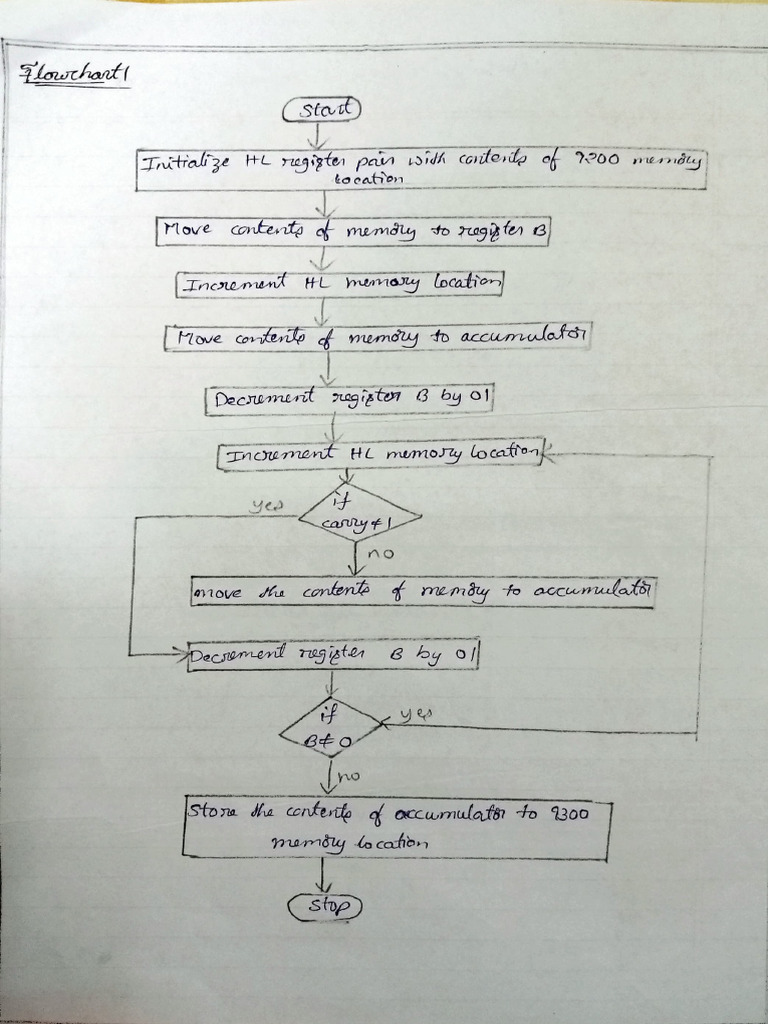 Flowchart 1
Start
Initialize HL register pair with contents of 9200 memory
location
Move contents of memory to register B
Increment HL memory location
Move contents of memory to accumulator
Decrement register B by 01
Increment HL memory location
yes
if
carry≠1
no
move the contents of memory to accumulator
Decrement register B by 01
if
B≠0
yes
no
Store the contents of accumulator to 9300
memory location
Stop